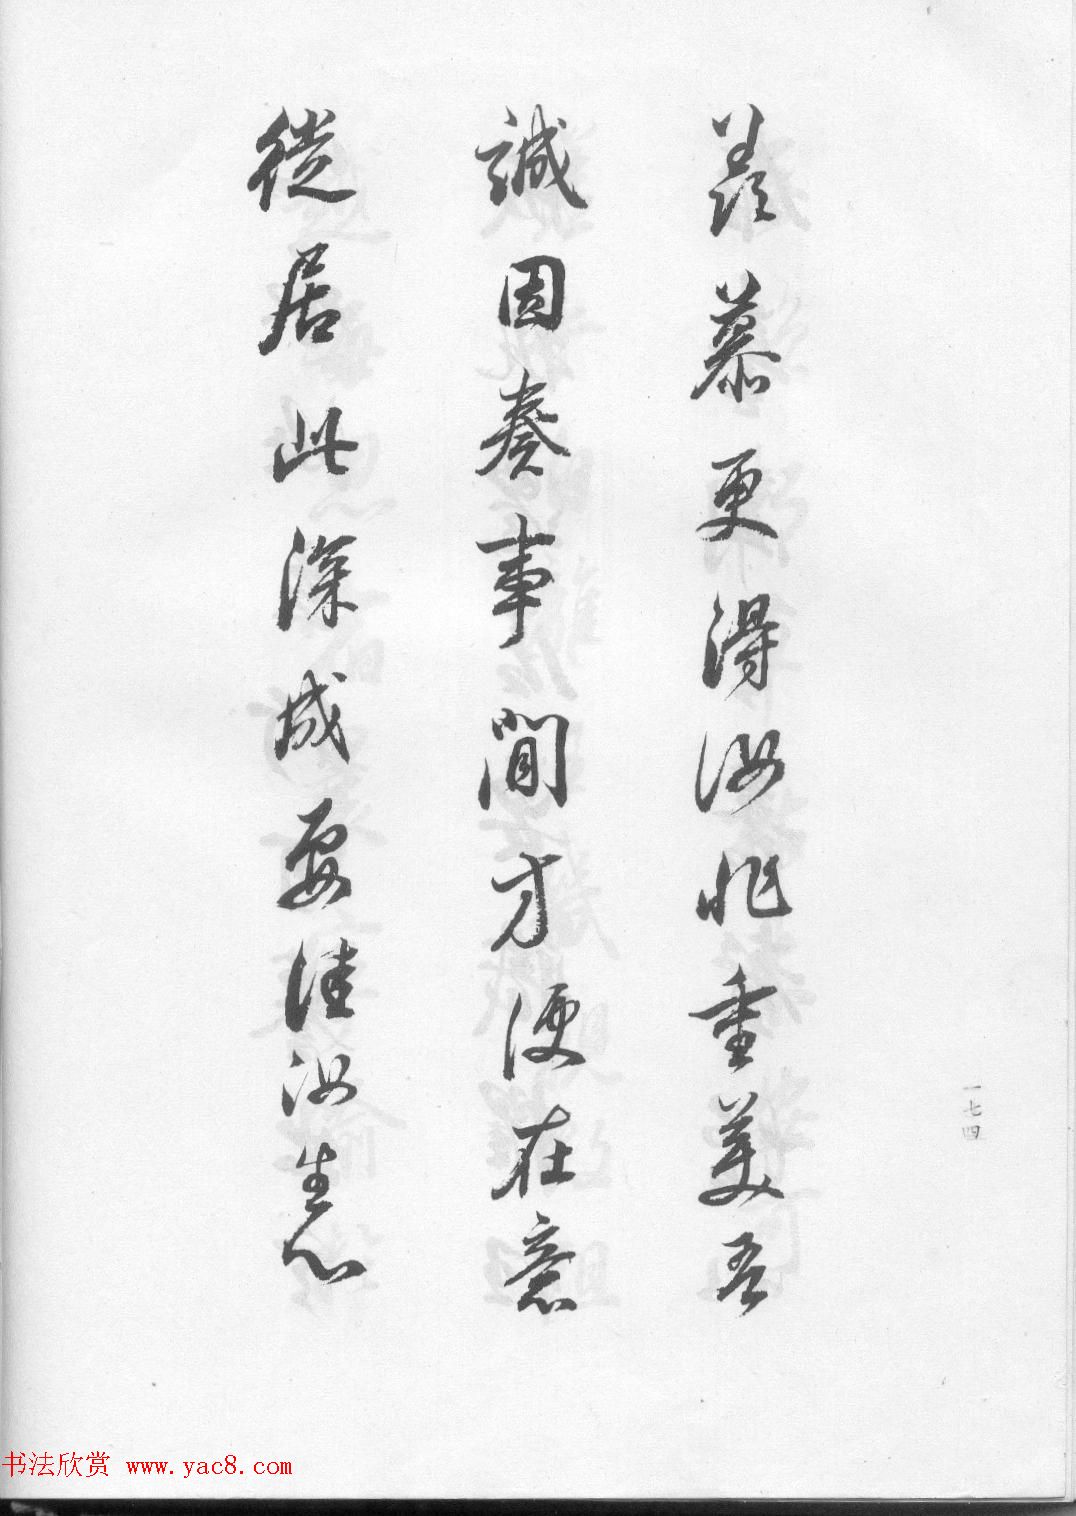 羨慕更得汝兆重美吾
誠因奏事間方便在意
從居此深成要法汝生心
一七四
书法欣赏 www.yac8.com